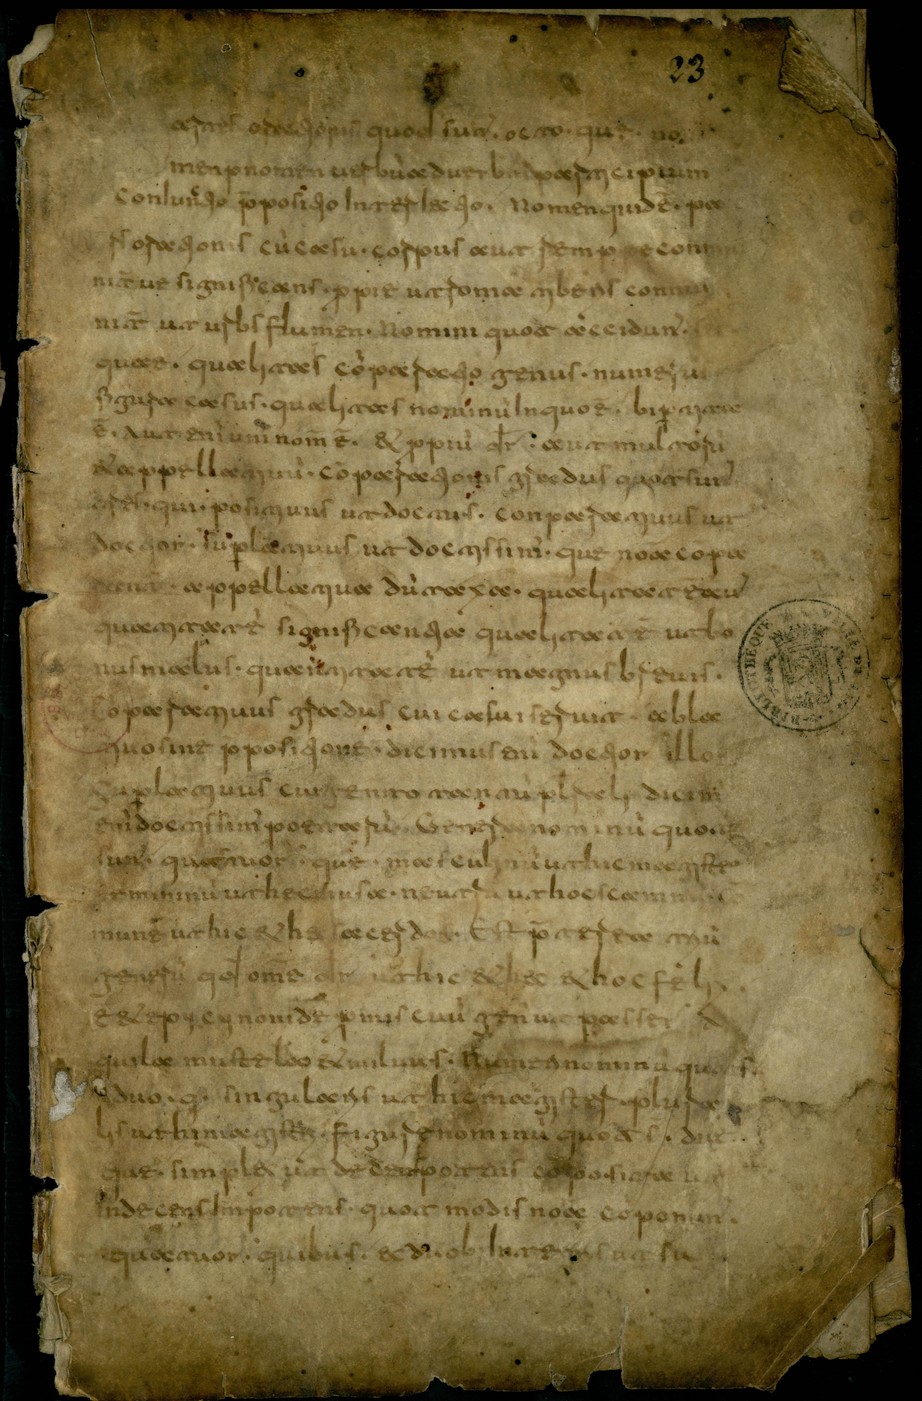 23
partes orationis quod sunt. octo. que. no
men pnomen uerbū aduerbiū participium
Coniunctio p̄positio Interiectio. Nomen quid ē. par
s orationis cū casu. corpus aut rem p̄prie commu
nit̄ ue significans. p̄prie ut roma tiberis commu
nit̄ ut urbs flumen. Nomini quot accidunt.
quae. qualitas cōparatio genus. numerus
figura casus. qualitas nominū In quo ē. bipertita
ē. Aut enī unī nom̄ ē. & p̄priū dr̄. aut multorū
& appellatiuū. Cōparationis gradus quot sunt
tres. qui. positiuus ut doctus. conparatiuus ut
doctior. suplatiuus ut doctissim̄. que nōa cōpa
rant̄. appellatiua dūtaxa. qualitatē aū
quantitatē significantia qualitatē ut bo
nus malus. quantitatē ut magnus breuis.
Cōparatiuus gradus cui casui seruit. abla
tiuo sine p̄positione. dicimus enī doctior illo
Suplatiuus cui genito tantū pl̄rali dicim̄
enī doctissim̄ poetarū. Genera nominū quot
sunt. quattuor. que. masculinū ut hic magister
femininū ut hec musa. neutrū ut hoc scamnū. cō
mune ut hic & hec sacerdos. Est p̄terea triū
generū qd̄ om̄e dr̄ ut hic & hec & hoc felix.
ē & epycynon id ē p̄mis cuū genū ut passer
aquila mustela & miluus. Numeri nominū quot s̄.
duo. q. singularis ut hic magister plura
lis ut hi magistri. figure nominū quot s̄. due.
que. simplex ut decens potens cōposita ut
indecens Inpotens. quot modis nōa cōponunt̄.
quattuor. quibus. ex duob; Integris ut su